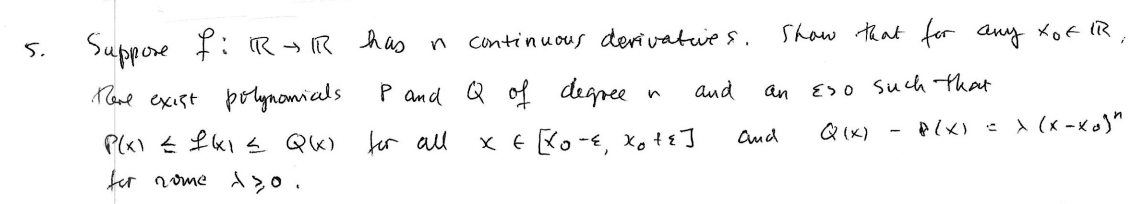 5. Suppose f: ℝ → ℝ has n continuous derivatives. Show that for any x₀ ∈ ℝ,
there exist polynomials P and Q of degree n and an ε>0 such that
P(x) ≤ f(x) ≤ Q(x) for all x ∈ [x₀-ε, x₀+ε] and Q(x) - P(x) = λ(x-x₀)ⁿ
for some λ≥0.